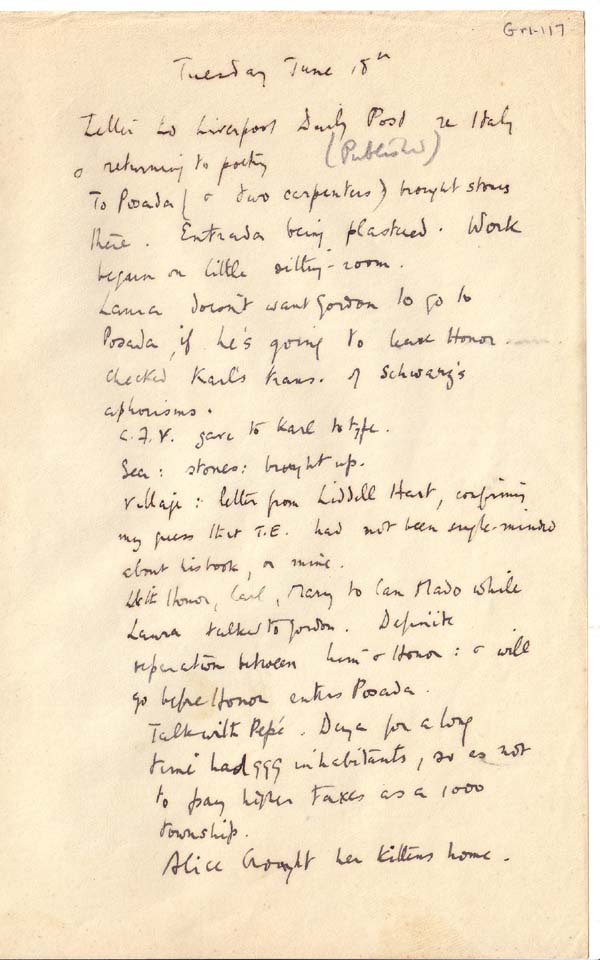 Gr1-117
Tuesday June 18th
Letter to Liverpool Daily Post re Italy
& returning to poetry (Published)
To Posada (& two carpenters) brought stones
there. Entrada being plastered. Work
began on little sitting-room.
Laura doesn't want Gordon to go to
Posada, if he's going to leave Honor.
Checked Karl's trans. of Schwarz's
aphorisms.
gave to Karl to type.
Sea: stones: brought up.
Village: letter from Liddell Hart, confirming
my guess that T.E. had not been single-minded
about his book, or mine.
With Honor, Karl, Mary to Can Madó while
Laura talked to Gordon. Definite
separation between him & Honor: & will
go before Honor enters Posada.
Talk with Pepé. Deya for a long
time had 999 inhabitants, so as not
to pay higher taxes as a 1000
township.
Alice brought her kittens home.